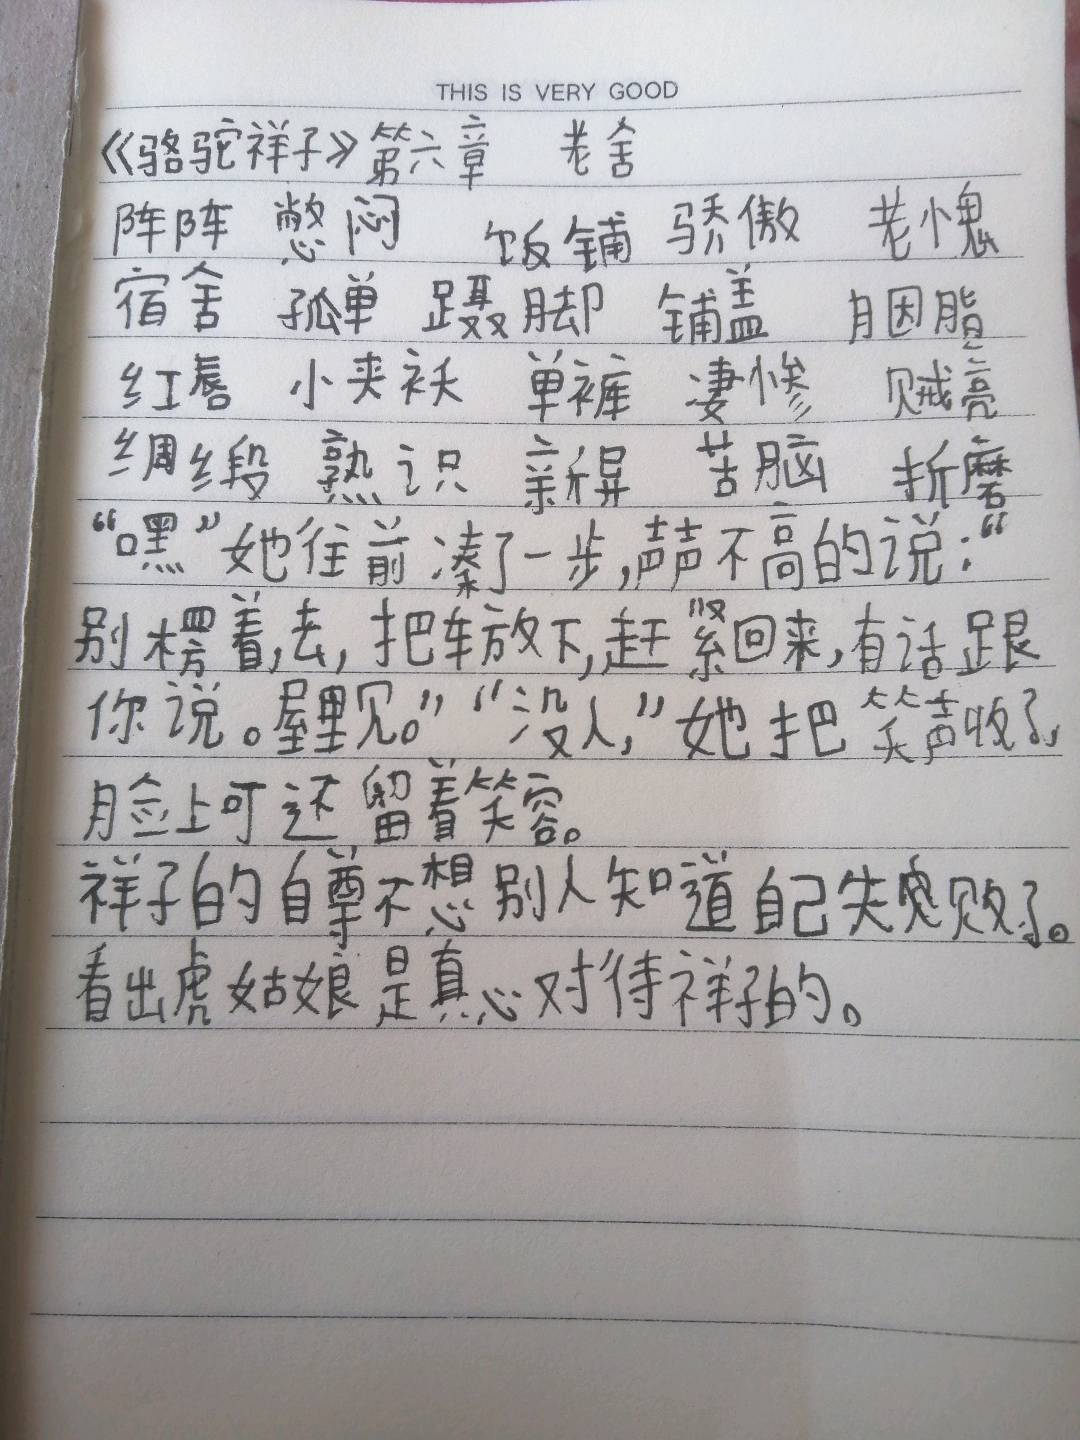 THIS IS VERY GOOD
《骆驼祥子》第六章 老舍
阵阵 憋闷 饭铺 骄傲 老愧
宿舍 孤单 蹑脚 铺盖 胭脂
红唇 小夹袄 单裤 凄惨 贼亮
绸缎 熟识 亲得 苦脑 折磨
“嘿”她往前凑了一步,声声不高的说:“
别楞着,去,把车放下,赶紧回来,有话跟
你说。屋里见。”“没人,”她把笑声收了,
脸上可还留着笑容。
祥子的自尊不想别人知道自己失败了。
看出虎姑娘是真心对待祥子的。